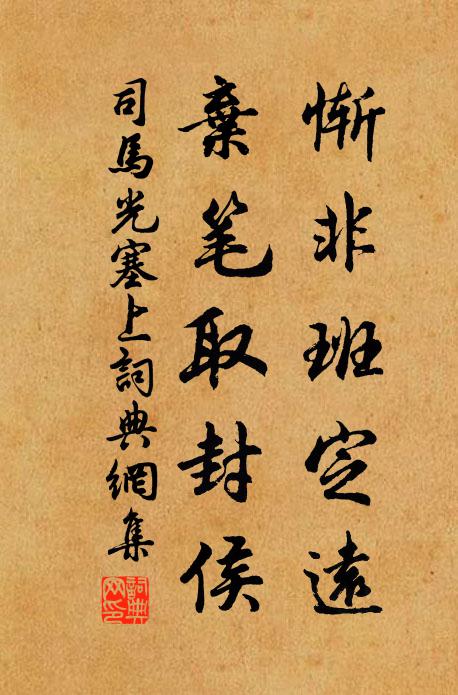 慚非班定遠
棄笔取封侯
司馬光塞上詞典網集
詞典
网印